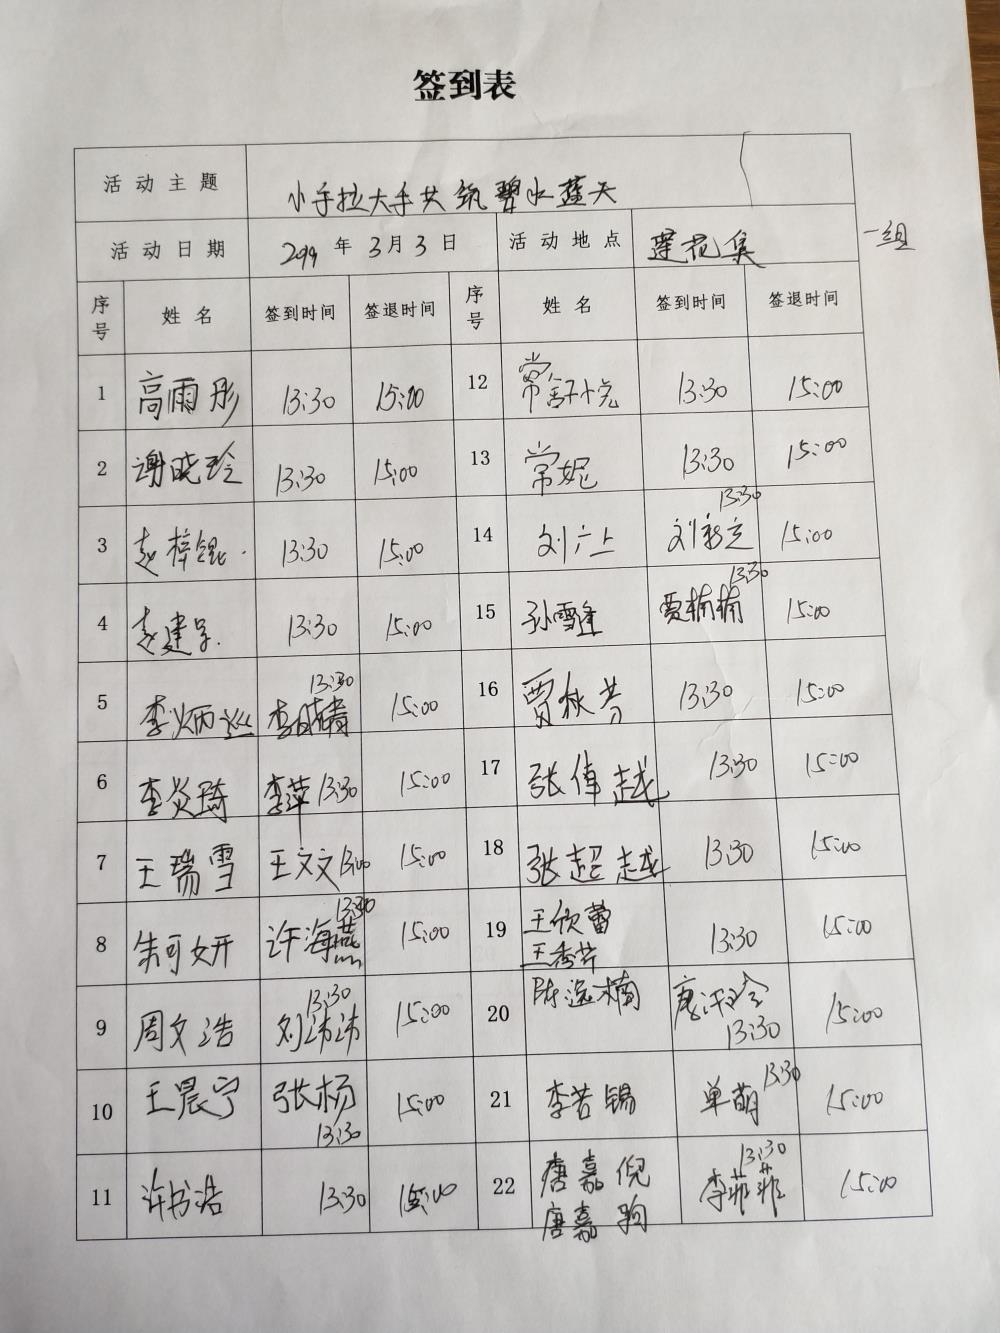 签到表
活动主题 小手拉大手共筑碧水蓝天
活动日期 年3月3日 活动地点 莲花集
一组
序号 姓名 签到时间 签退时间 序号 姓名 签到时间 签退时间
1 高雨彤 13:30 15:00 12 常舒悦 13:30 15:00
2 谢晓玲 13:30 15:00 13 常妮 13:30 15:00
3 赵梓锟 13:30 15:00 14 刘 13:30 15:00
4 赵建 13:30 15:00 15 孙雪 贾楠楠 13:30 15:00
5 李炳 13:30 15:00 16 贾秋芳 13:30 15:00
6 李炎琦 李萍 13:30 15:00 17 张倬越 13:30 15:00
7 王瑞雪 王文文 15:00 18 张超越 13:30 15:00
8 朱可妍 许海燕 13:30 15:00 19 王欣蕾 王秀芹 13:30 15:00
9 周文浩 13:30 15:00 20 陈逸楠 13:30 15:00
10 王晨宁 张杨 13:30 15:00 21 李若锡 单萌 13:30 15:00
11 许书浩 13:30 15:00 22 唐嘉倪 唐嘉驹 李菲菲 13:30 15:00